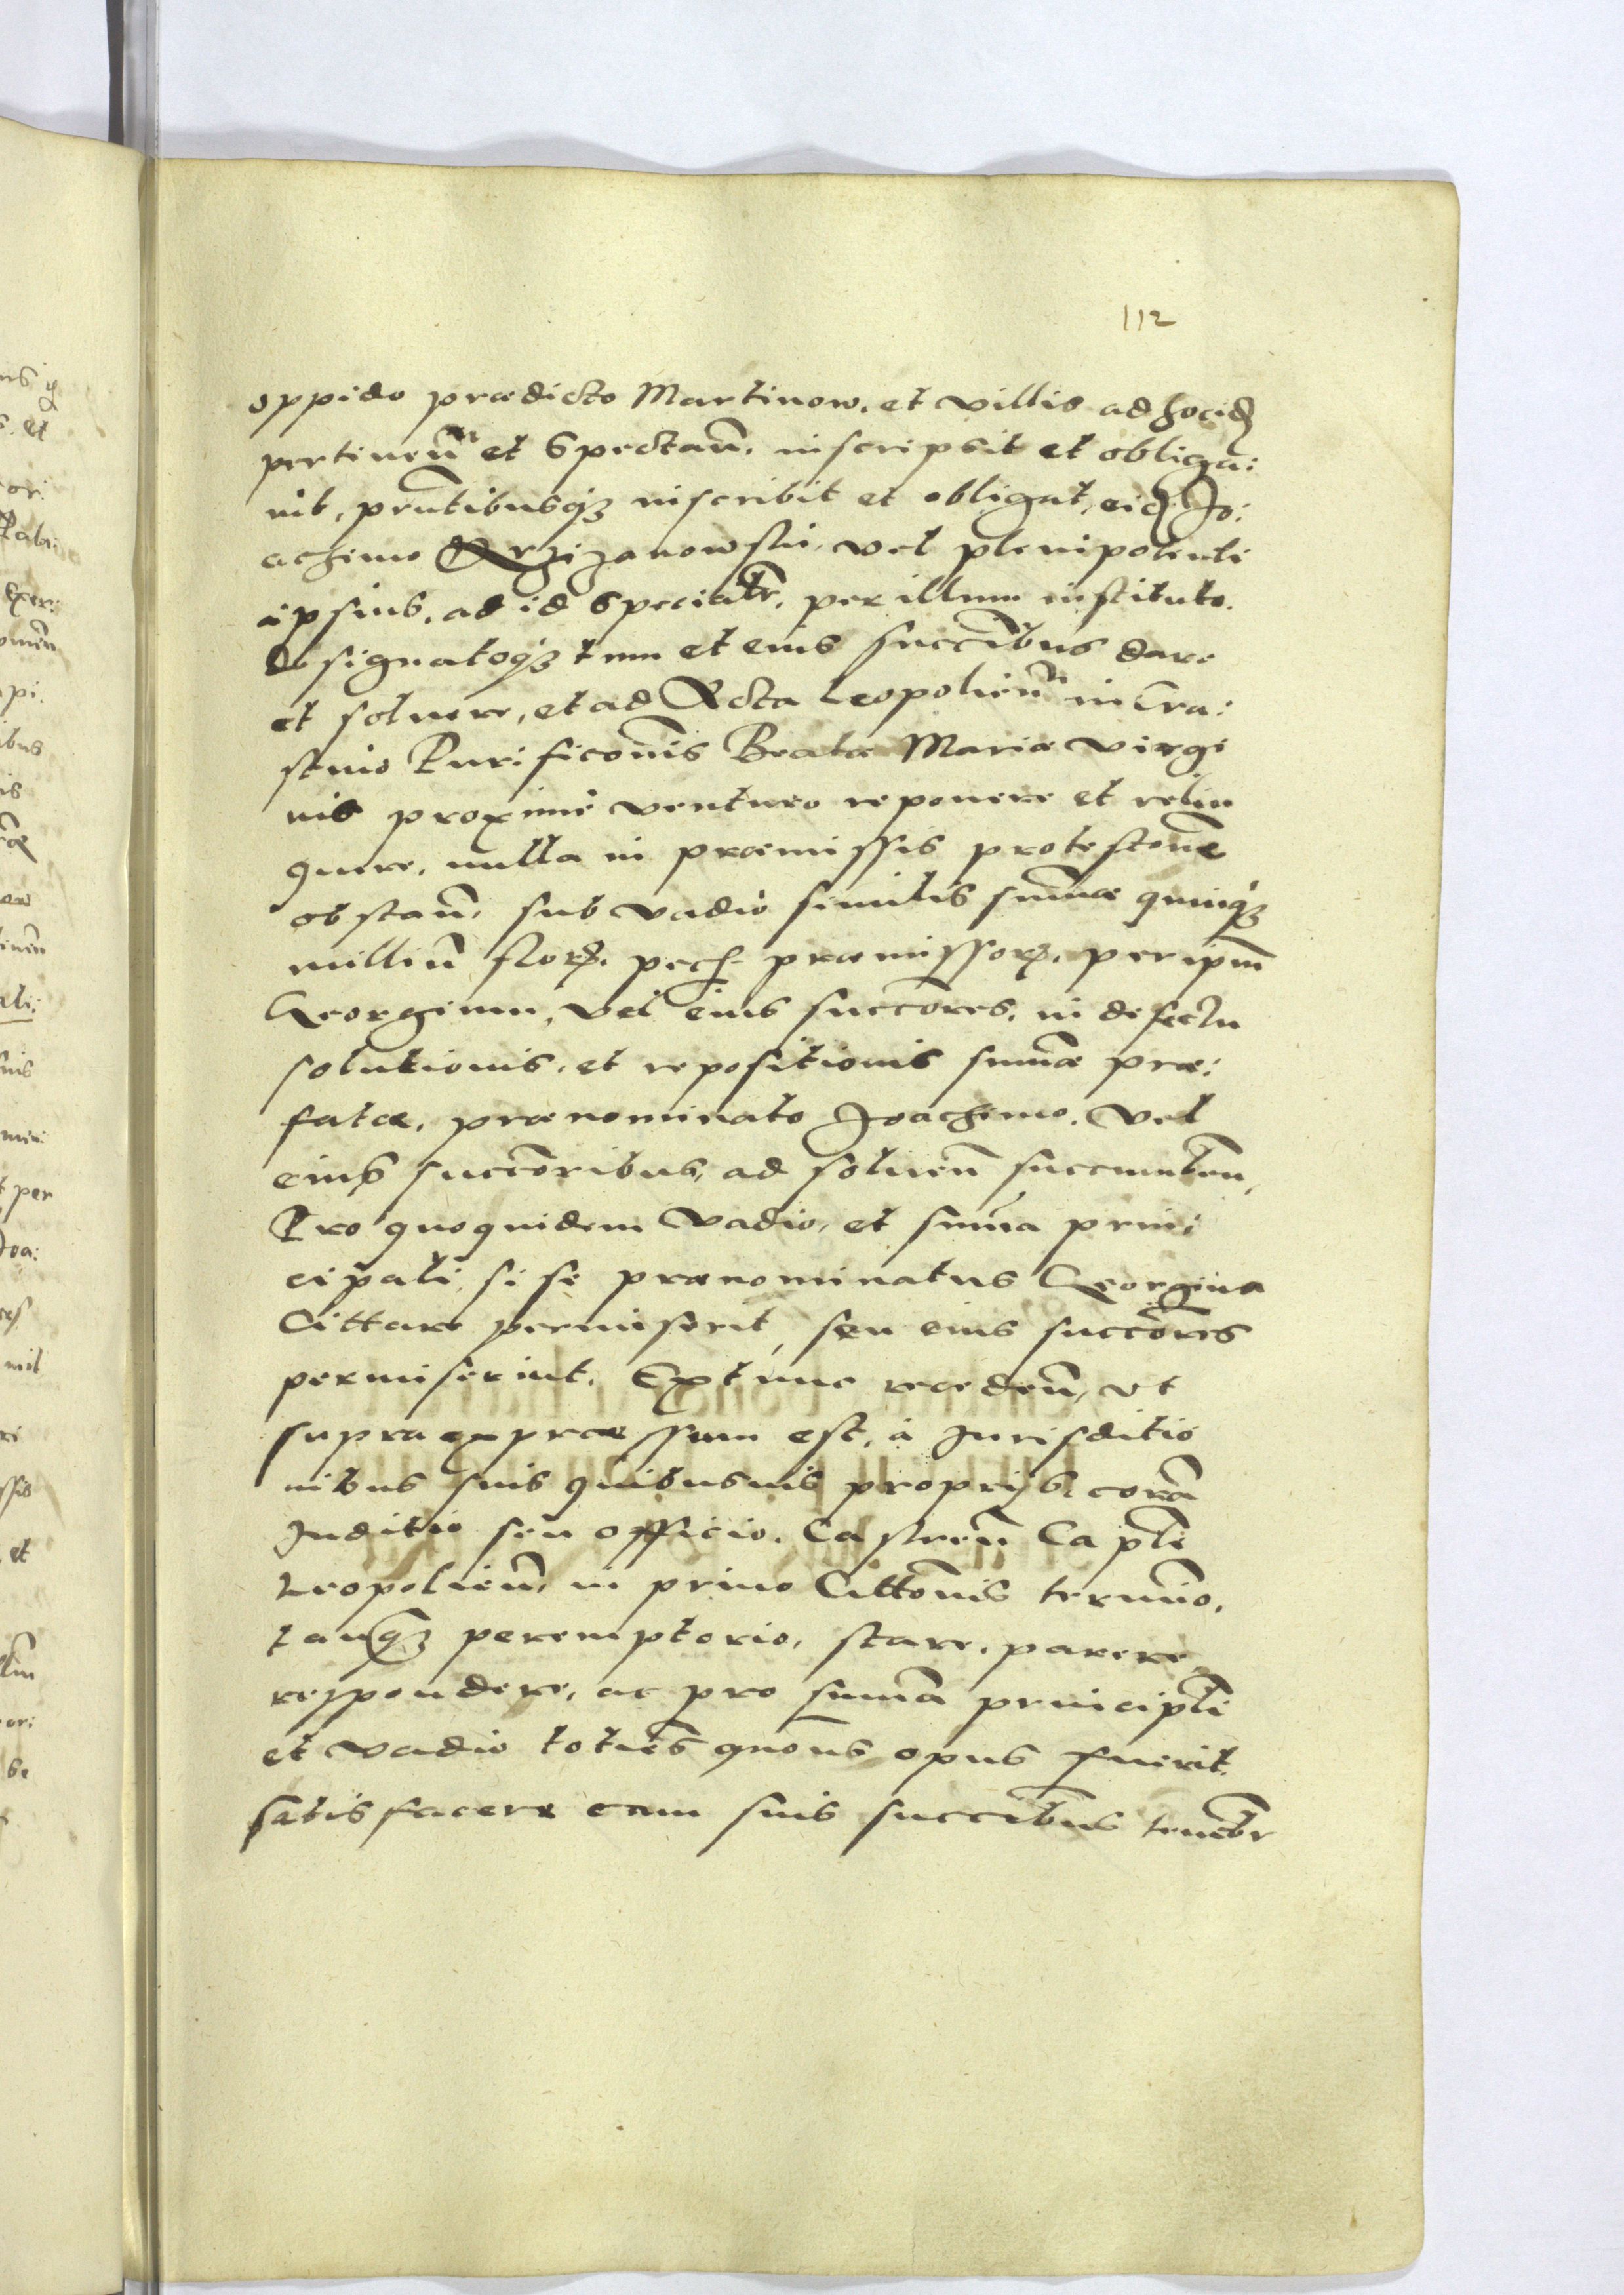 112
oppido prædicto Martinow, et villis ad hocid
pertineñ et Spectañ, inscripsit et obliga:
uit, pñtibusq3 inscribit et obligat, eid. Jo:
achimo Krzizanowski, vel plenipotenti
ipsius, ad id Specialr, per illum instituto,
designatoq3 tum et eius succ̃ibus dare
et soluere, et ad Acta Leopolieñ in Cra:
stino Purificõnis Beatæ Mariæ Virgi
nis proximè venturo reponere et relin
quere, nulla in præmissis protestõne
obstañ, sub vadio similis sum̃æ quinq3
milliũ flor. pecῆ præmissor. per ipm̃
Georgium, vel eius succõres, in defectu
solutionis, et repositionis sum̃æ præ:
fatæ, prænominato Joachimo, vel
eius succõribus, ad solueñ succumbeñ,
Pro quoquidem Vadio, et sum̃a prin:
cipali, si se prænominatus Georgius
Cittare permiserit, seu eius succõres
permiserint, Extunc recedeñ, vt
supra expræssum est, à Jurisditio
nibus suis quibusuis proprijs, corã
Juditio seu officio, Castreñ Capλi
Leopolieñ, in primo Cittõnis termĩo,
tanq3 peremptorio, stare, parere
respondere, ac pro sum̃a principλi
et vadio totiẽs quõns opus fuerit,
satisfacere cum suis succ̃ibus teneb̃r